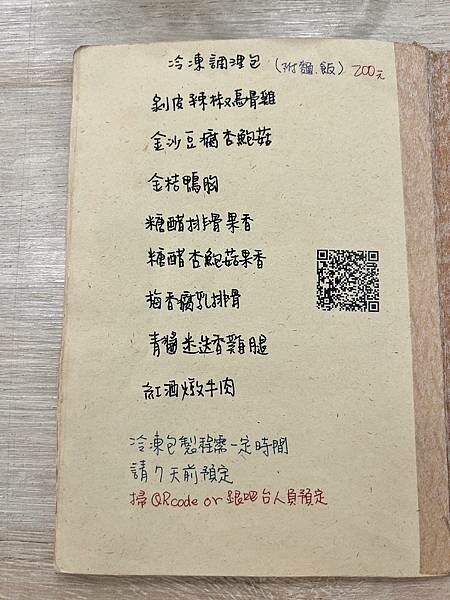 冷凍調理包（附麵、飯）200元
剝皮辣椒烏骨雞
金沙豆腐杏鮑菇
金桔鴨胸
糖醋排骨果香
糖醋杏鮑菇果香
梅香腐乳排骨
青醬迷迭香雞腿
紅酒燉牛肉
冷凍包製程需一定時間
請7天前預定
掃QRcode or 跟吧台人員預定